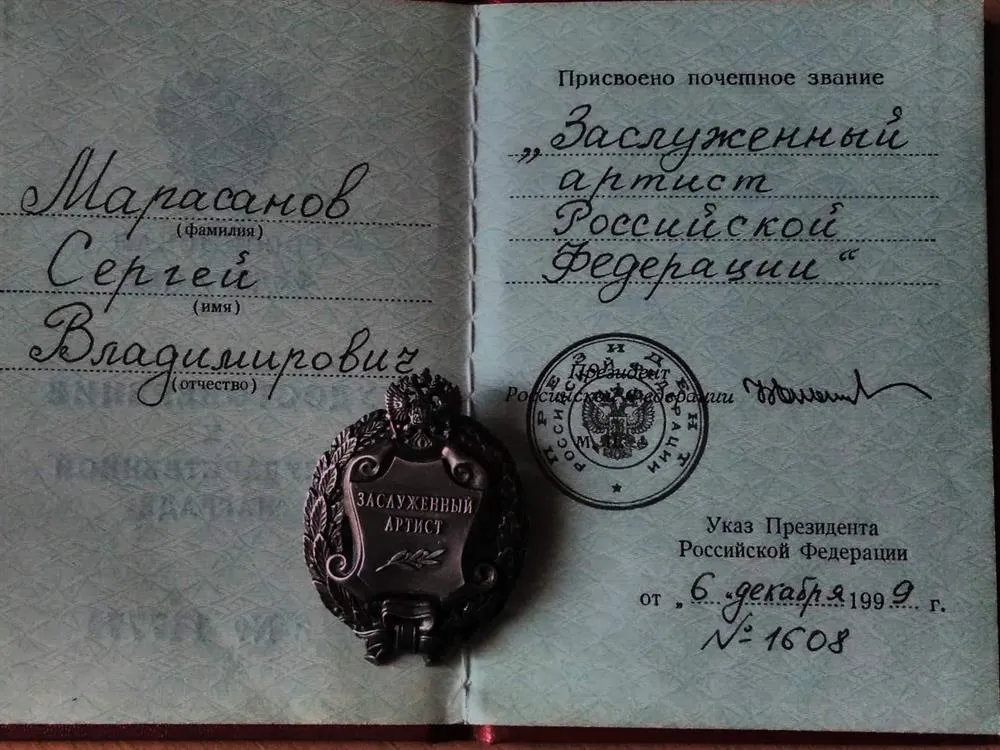 Марасанов
(фамилия)
Сергей
(имя)
Владимирович
(отчество)
ЗАСЛУЖЕННЫЙ
АРТИСТ
Присвоено почетное звание
„Заслуженный
артист
Российской
Федерации“
Президент
Российской Федерации
М.П.
ПРЕЗИДЕНТ
РОССИЙСКОЙ ФЕДЕРАЦИИ
Указ Президента
Российской Федерации
от „6„ декабря 1999 г.
№ 1608